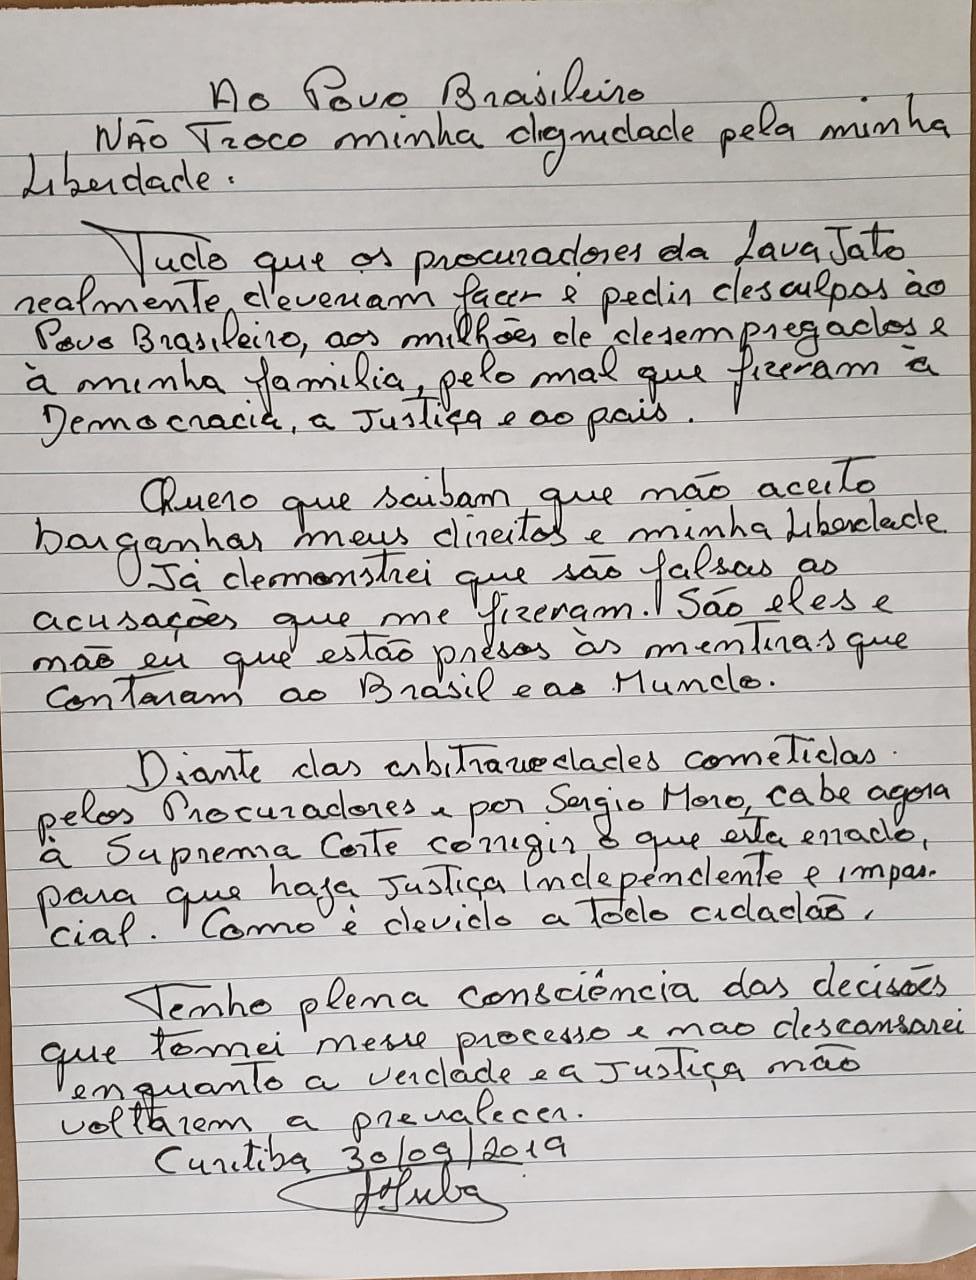 Ao Povo Brasileiro
Não Troco minha dignidade pela minha
Liberdade.
Tudo que os procuradores da Lava Jato
realmente deveriam fazer é pedir desculpas ão
Povo Brasileiro, aos milhões de desempregados e
à minha familia, pelo mal que fizeram à
Democracia, a Justiça e ao pais.
Quero que saibam que não aceito
barganhar meus direitos e minha Liberdade
Já demonstrei que são falsas as
acusações que me fizeram. São eles e
não eu que estão presos às mentiras que
contaram ao Brasil e ao Mundo.
Diante das arbitrariedades cometidas
pelos Procuradores e por Sergio Moro, cabe agora
à Suprema Corte corrigir o que esta errado,
para que haja Justiça Independente e impar-
cial. Como é devido a todo cidadão,
Tenho plena consciência das decisões
que tomei nesse processo e nao descansarei
enquanto a verdade e a Justiça não
voltarem a prevalecer.
Curitiba 30/09/2019